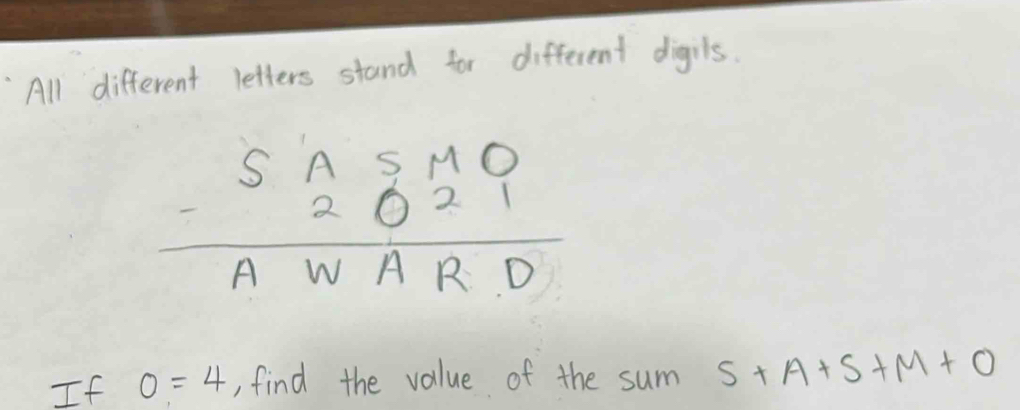 All different letters stand for different digils.
S A S M O
- 2 0 2 1
A W A R D
If O = 4, find the value of the sum S + A + S + M + O